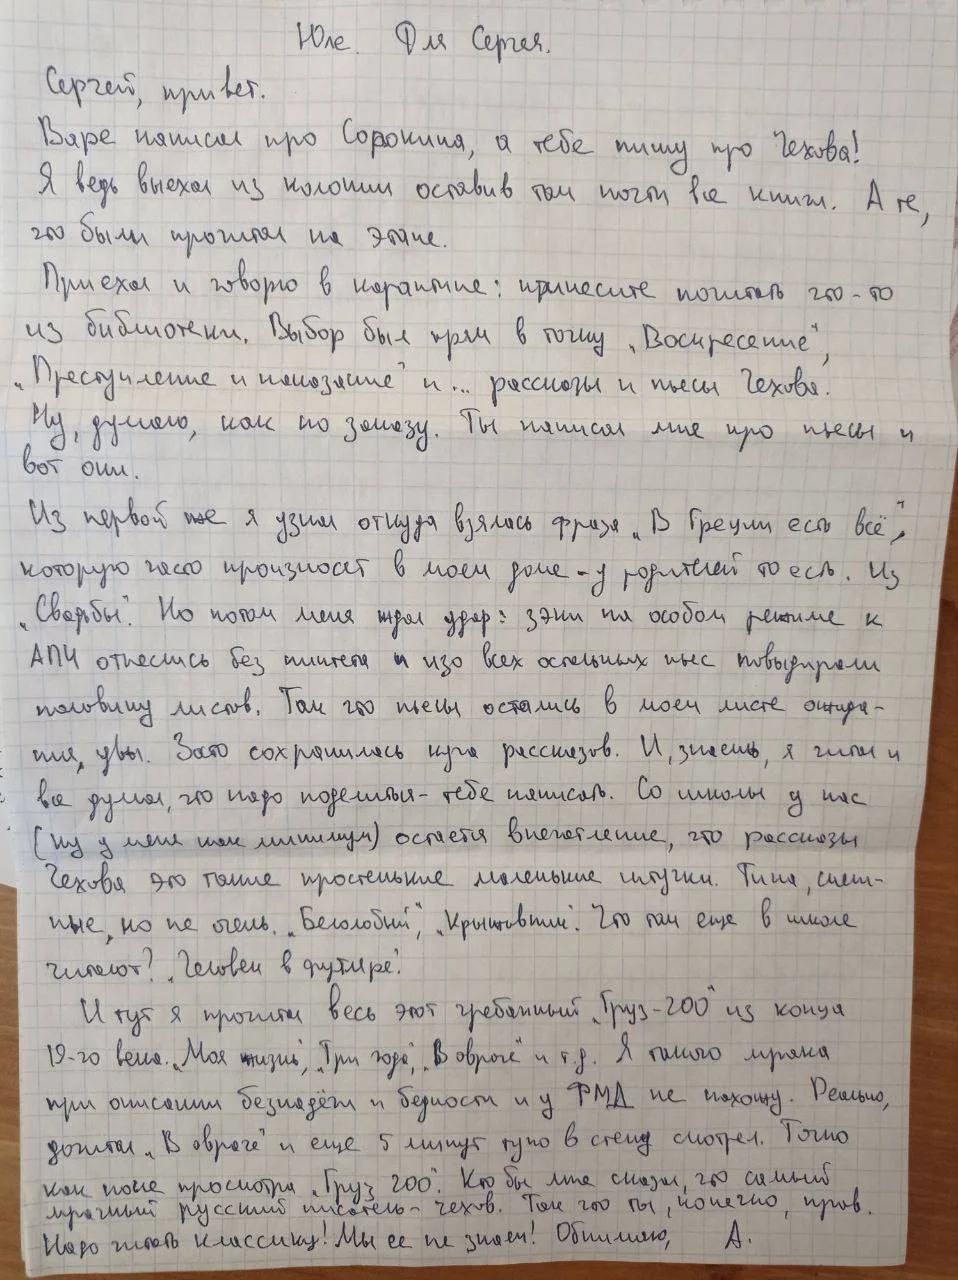 Юле. Для Сергея.
Сергей, привет.
Варе написал про Сорокина, а тебе пишу про Чехова!
Я ведь выехал из колонии оставив там почти все книги. А те,
что были прочитал на этапе.
Приехал и говорю в карантине: принесите почитать что-то
из библиотеки. Выбор был прям в точку „Воскресение",
„Преступление и наказание" и... рассказы и пьесы Чехова.
Ну, думаю, как по заказу. Ты написал мне про пьесы и
вот они.
Из первой же я узнал откуда взялась фраза „В Греции есть всё",
которую часто произносят в моем доме - у родителей то есть. Из
„Свадьбы". Но потом меня ждал удар: зэки на особом режиме к
АПЧ отнеслись без пиитета и изо всех остальных пьес повыдирали
половину листов. Так что пьесы остались в моем листе ожида-
ния, увы. Зато сохранилась куча рассказов. И, знаешь, я читал и
все думал, что надо поделиться - тебе написать. Со школы у нас
(ну у меня как минимум) остается впечатление, что рассказы
Чехова это такие простенькие маленькие штучки. Типа, смеш-
ные, но не очень. „Белолобый", „Крыжовник". Что там еще в школе
читают? „Человек в футляре".
И тут я прочитал весь этот гребанный „Груз-200" из конца
19-го века. „Моя жизнь", „Три года", „В овраге" и т.д. Я такого мрака
при описании безнадёги и бедности и у ФМД не нахожу. Реально,
дочитал „В овраге" и еще 5 минут тупо в стену смотрел. Точно
как после просмотра „Груз 200". Кто бы мне сказал, что самый
мрачный русский писатель - Чехов. Так что ты, конечно, прав.
Надо читать классику! Мы ее не знаем! Обнимаю, А.